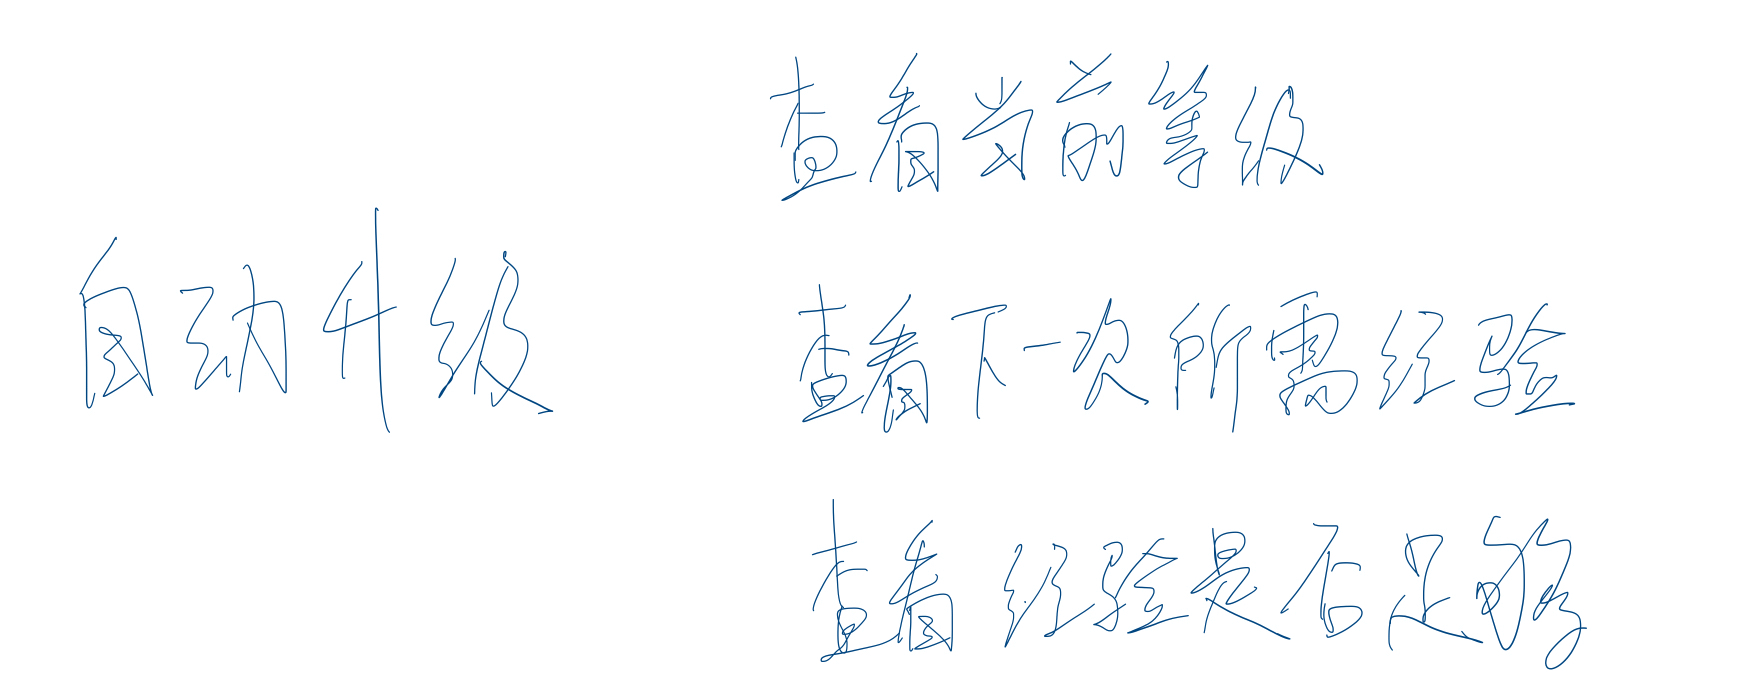 自动升级
查看当前等级
查看下一次所需经验
查看经验是否足够